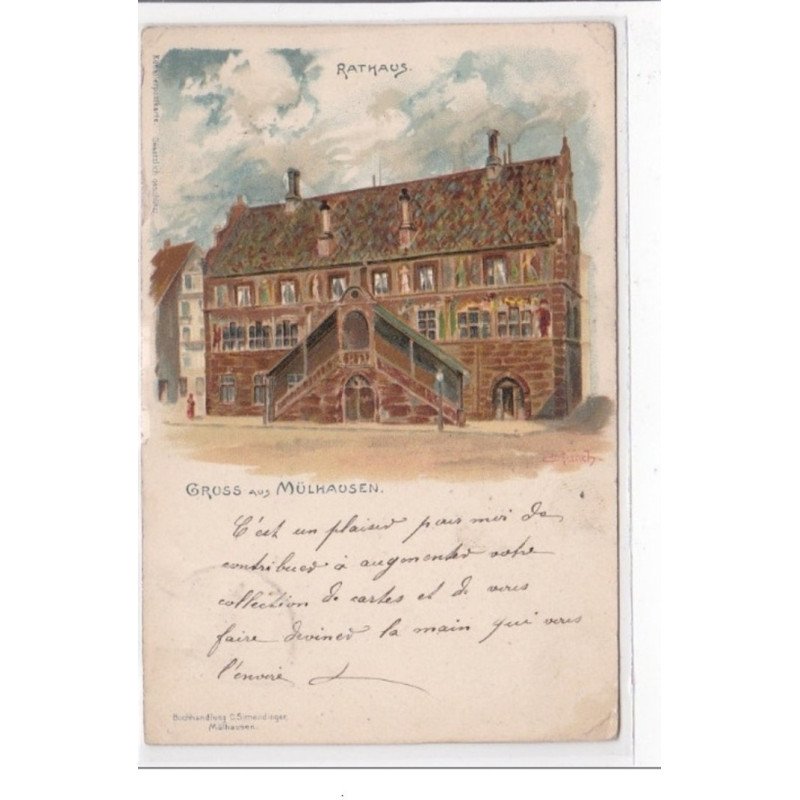 RATHAUS.
GRUSS AUS MÜLHAUSEN.
C'est un plaisir pour moi de
contribuer à augmenter votre
collection de cartes et de vous
faire deviner la main qui vous
l'envoie
Buchhandlung C. Simendinger,
Mülhausen.